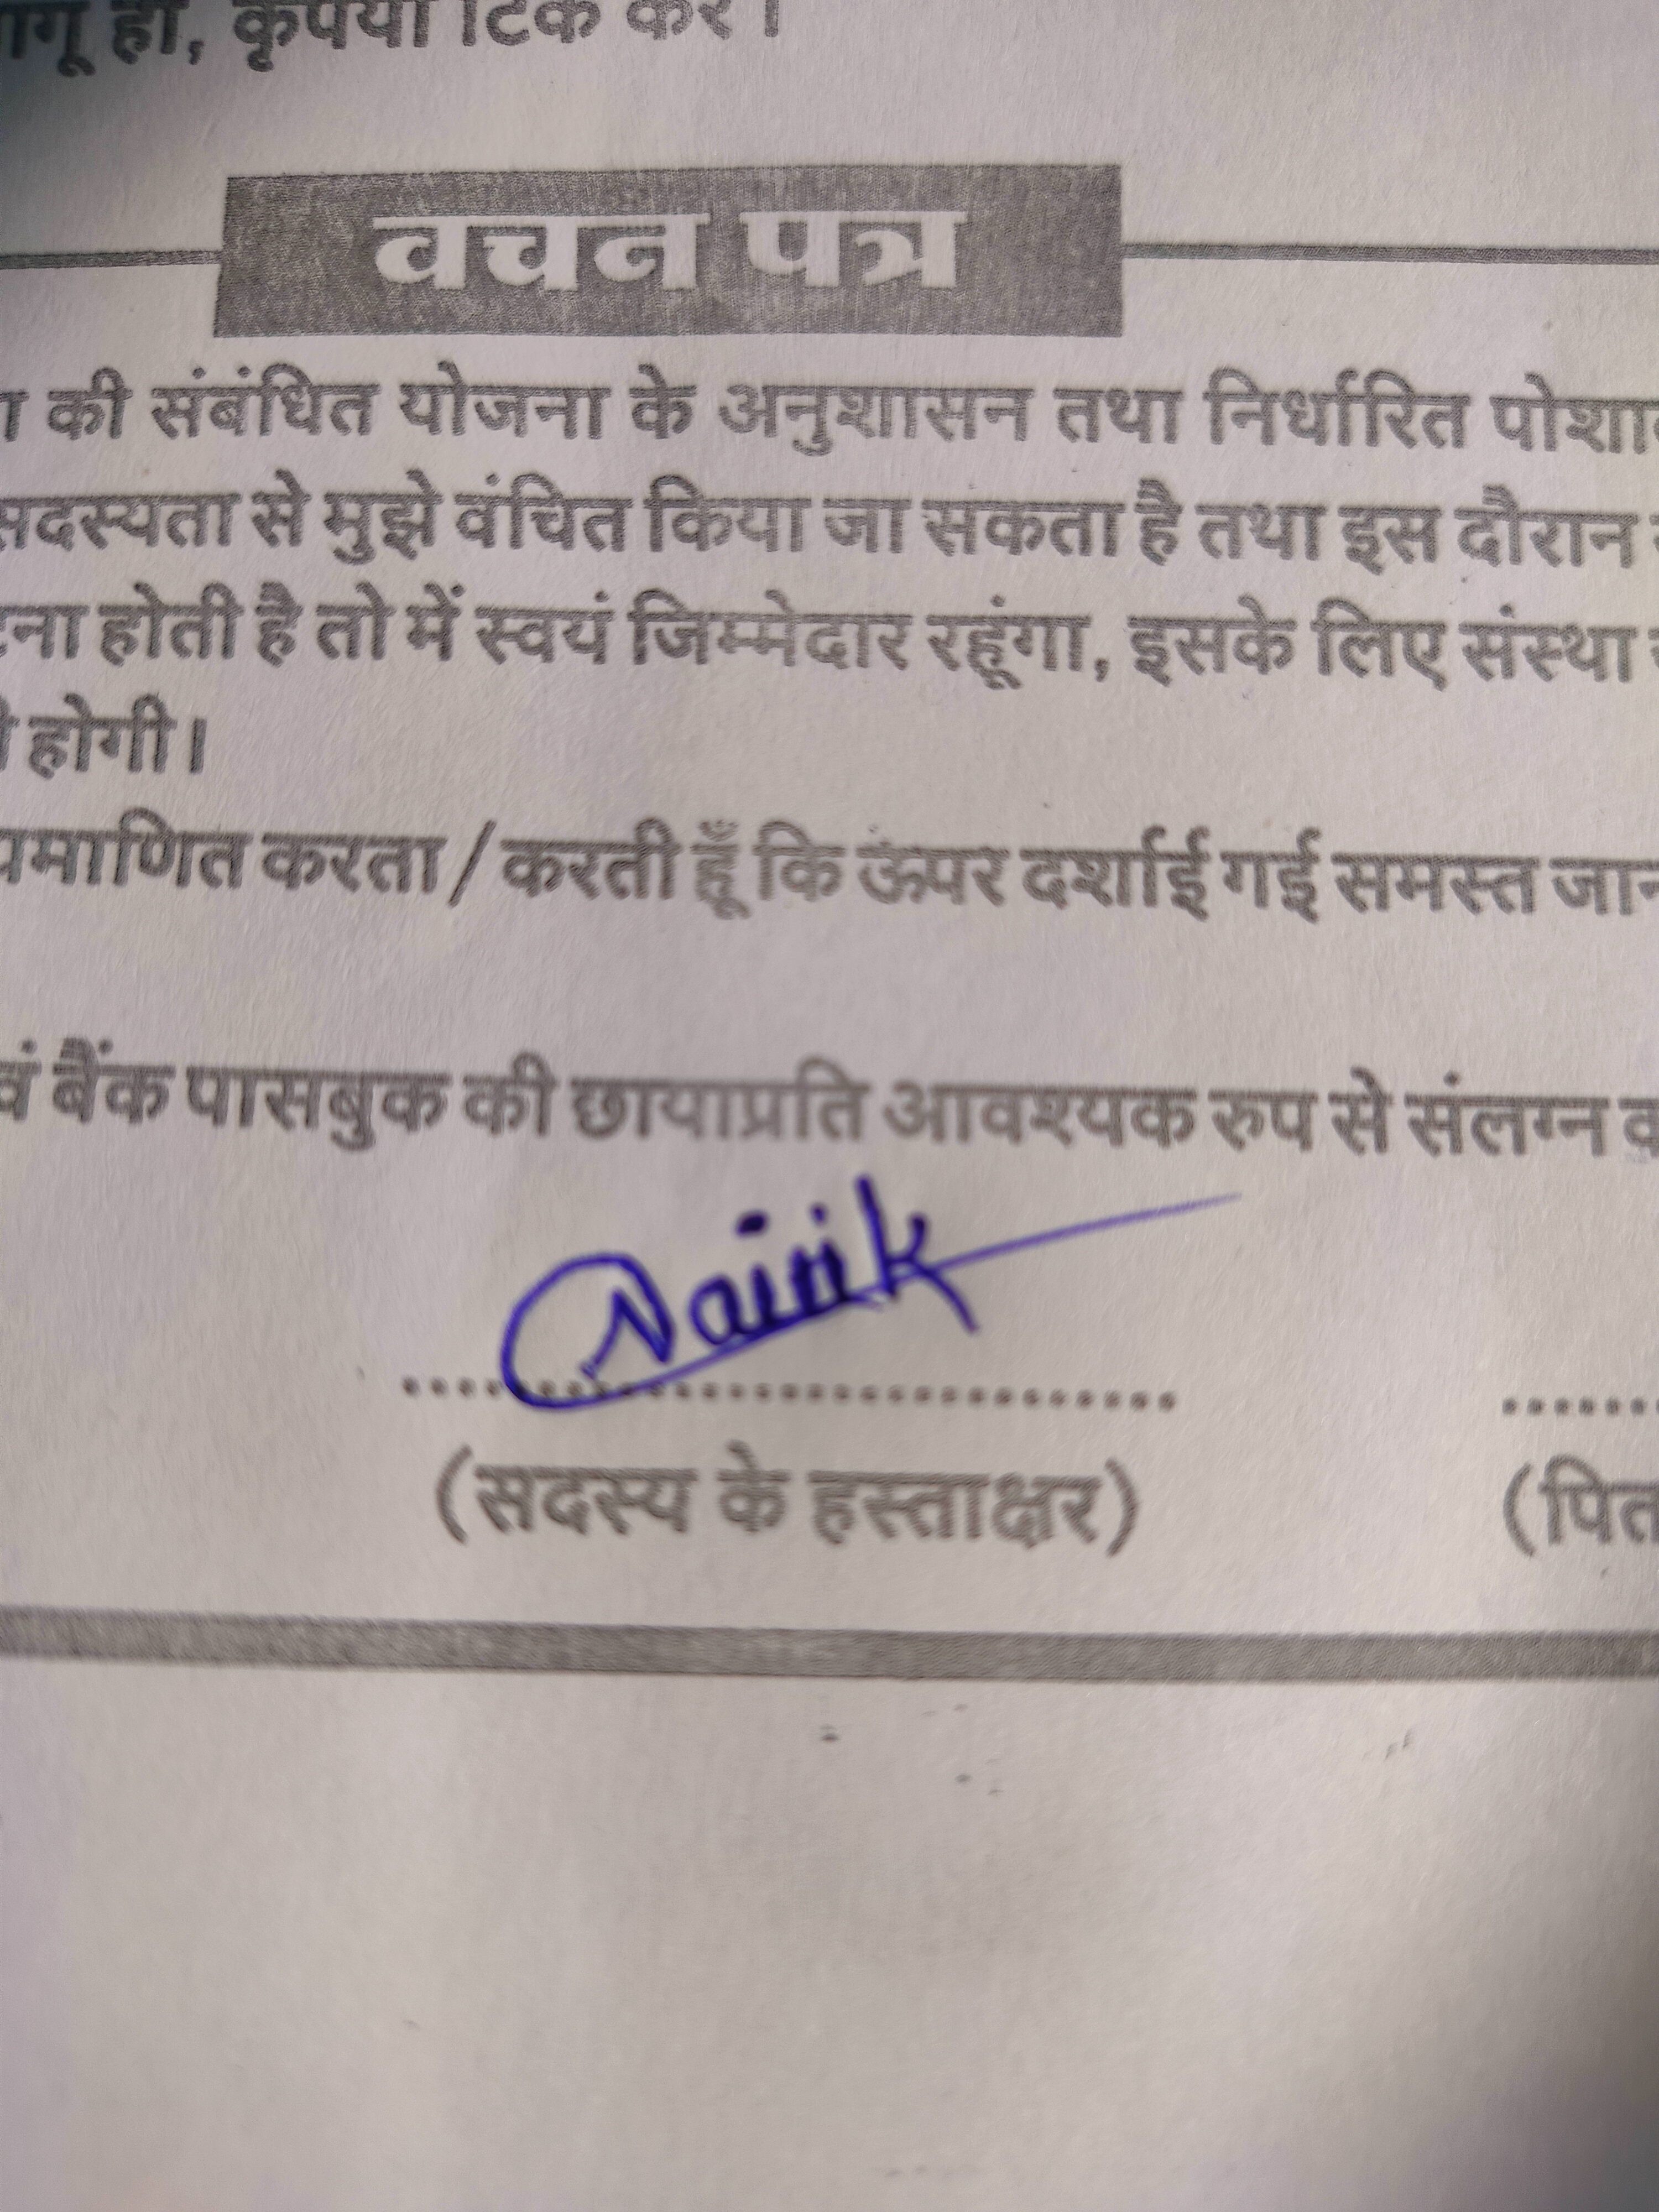 हो, कृपया टिक करें।
वचन पत्र
की संबंधित योजना के अनुशासन तथा निर्धारित
सदस्यता से मुझे वंचित किया जा सकता है तथा इस दौरान
होती है तो में स्वयं जिम्मेदार रहूंगा, इसके लिए संस्था
होगी।
प्रमाणित करता / करती हूँ कि ऊपर दर्शाई गई समस्त
बैंक पासबुक की छायाप्रति आवश्यक रुप से संलग्न
(सदस्य के हस्ताक्षर)